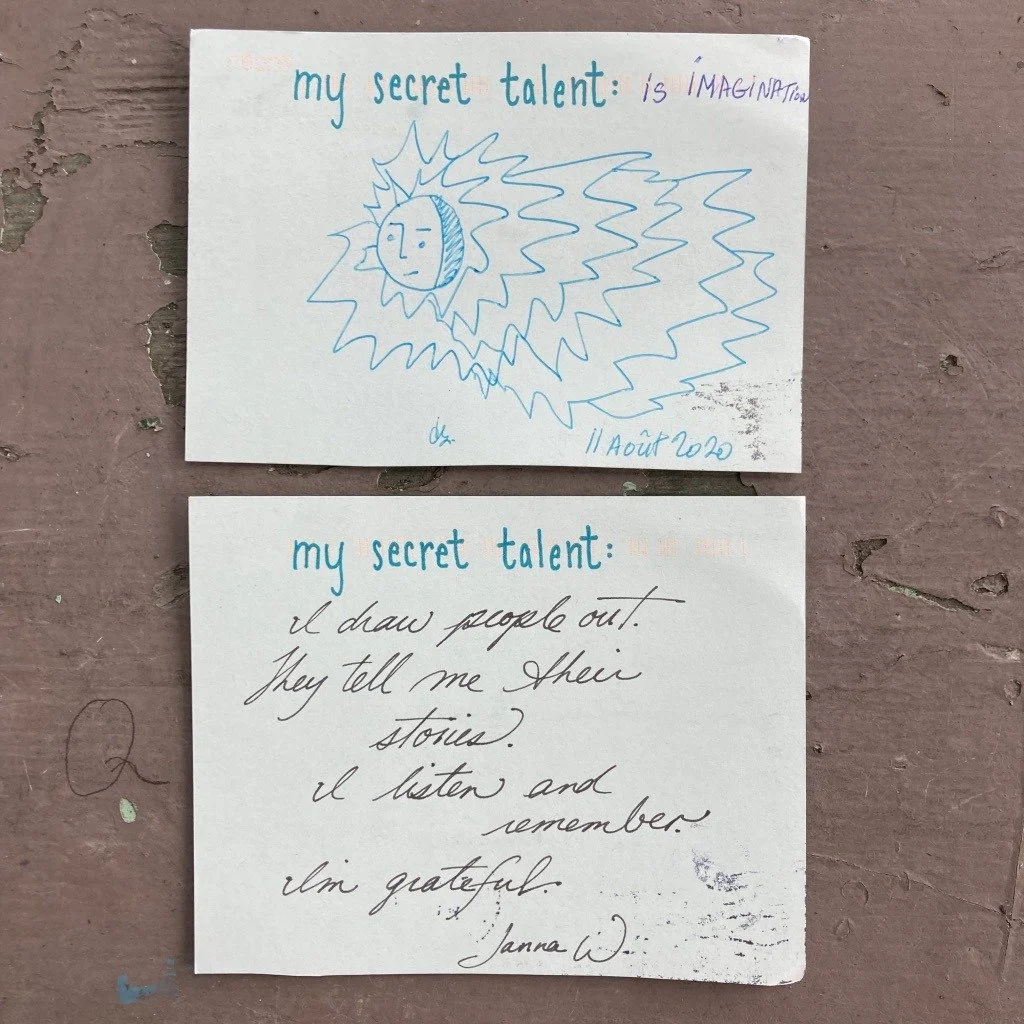 my secret talent: is IMAGINATION
11 Août 2020
my secret talent:
I draw people out.
They tell me their
stories.
I listen and
remember.
I'm grateful.
Janna W